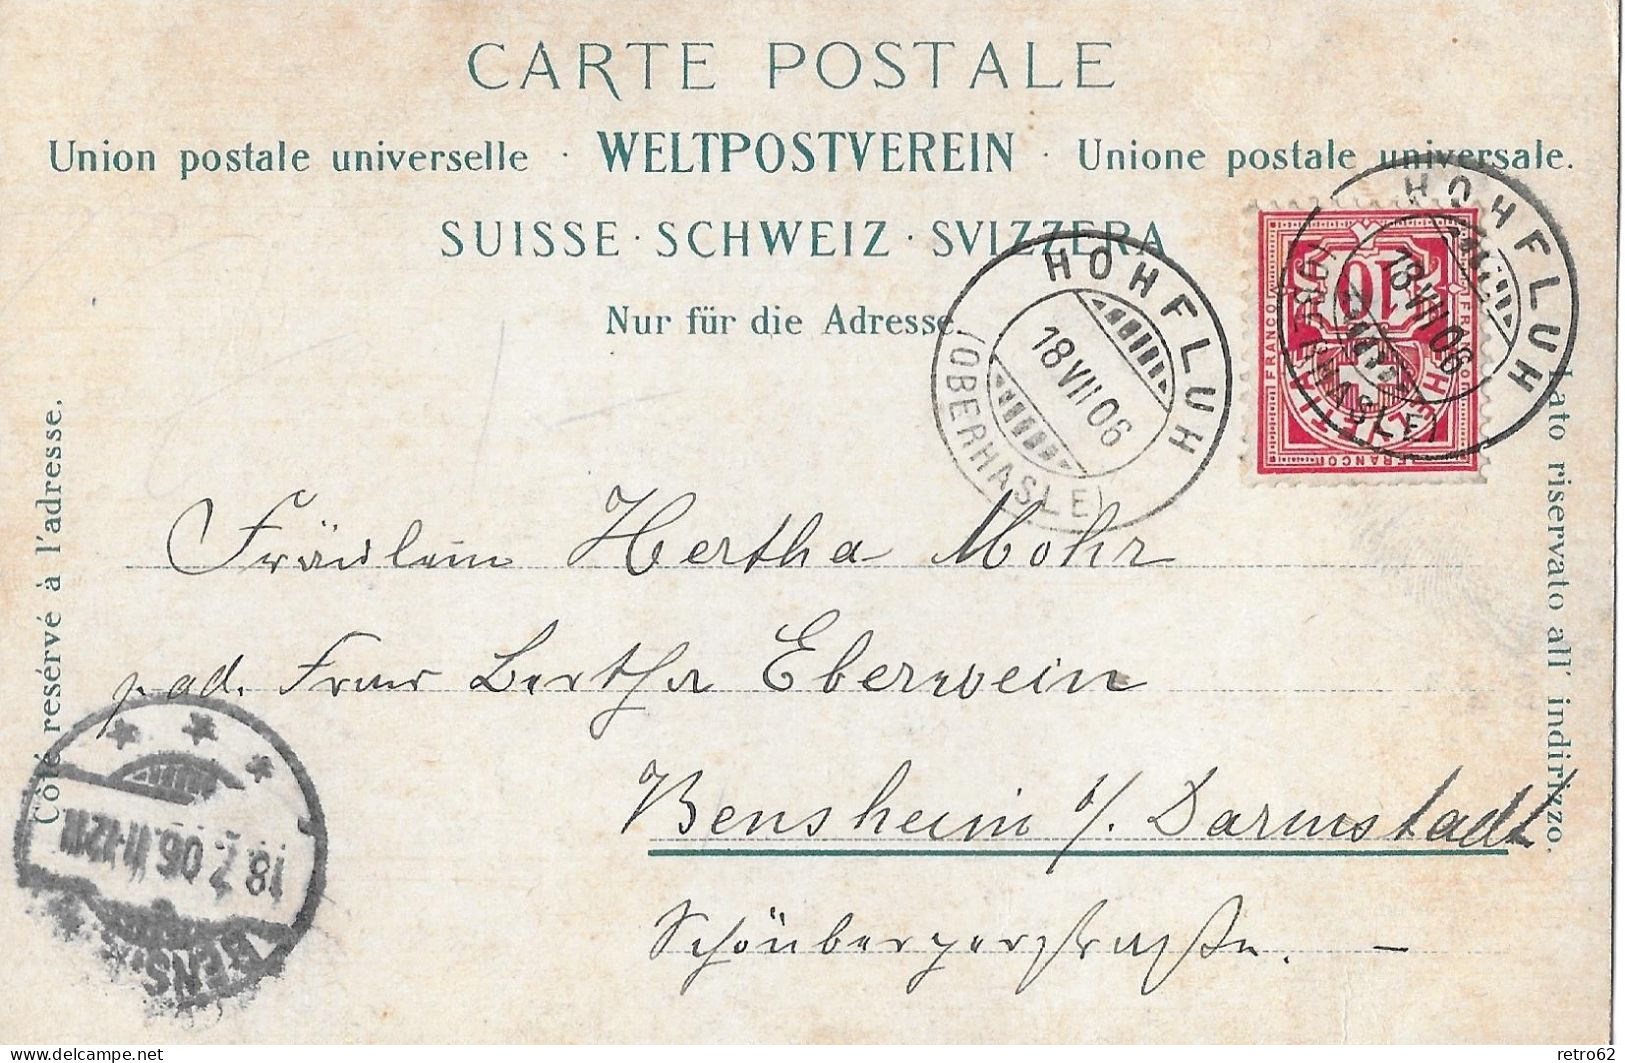 CARTE POSTALE
Union postale universelle · WELTPOSTVEREIN · Unione postale universale.
SUISSE · SCHWEIZ · SVIZZERA
Nur für die Adresse.
Côté resérvé à l'adresse.
Lato riservato all' indirizzo.
HOHFLUH
18 VII 06
(OBERHASLE)
HOHFLUH
18 VII 06
(OBERHASLE)
FRANCO
FRANCO
10
HELVETIA
FRANCO
FRANCO
Fräulein Hertha Mohr
p. ad. Frau Bertha Eberwein
Bensheim b/. Darmstadt
Schönbergerstraße. —
18.7.06.11-12V
BENS
delcampe.net
retro62